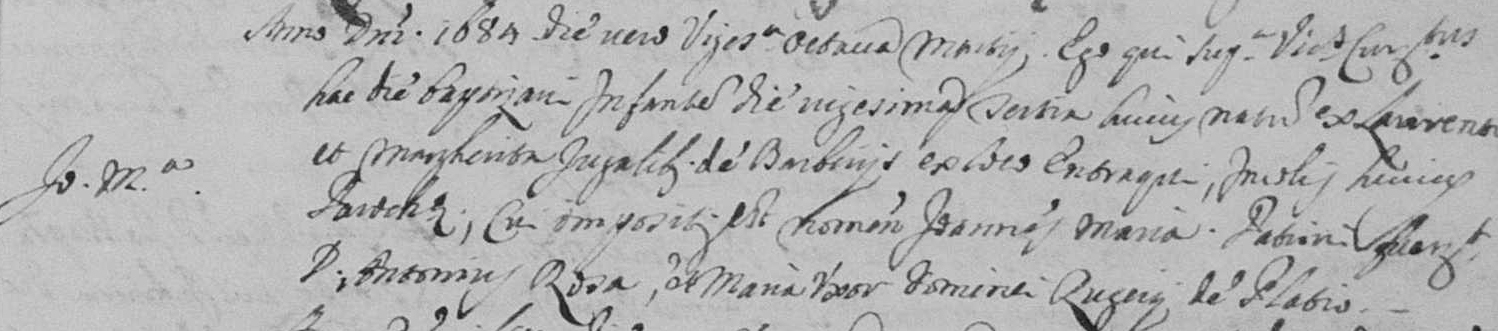 Anno Dni. 1684 die vero Viges.a octava Martij. Ego qui sup.a Vic.s Curatus
hac die baptizavi Infantē die vigesima tertia huius natū ex Laurentio
et Margherita Jugalib. de Barberijs ex loco Entragni, Incolis huius
Jo. M.a. Parochæ, Cui impositū est nomen Joannes Maria. Patrini fuerūt
D. Antonius Rosa, et Maria Uxor Dominici Rugerij de Platio.